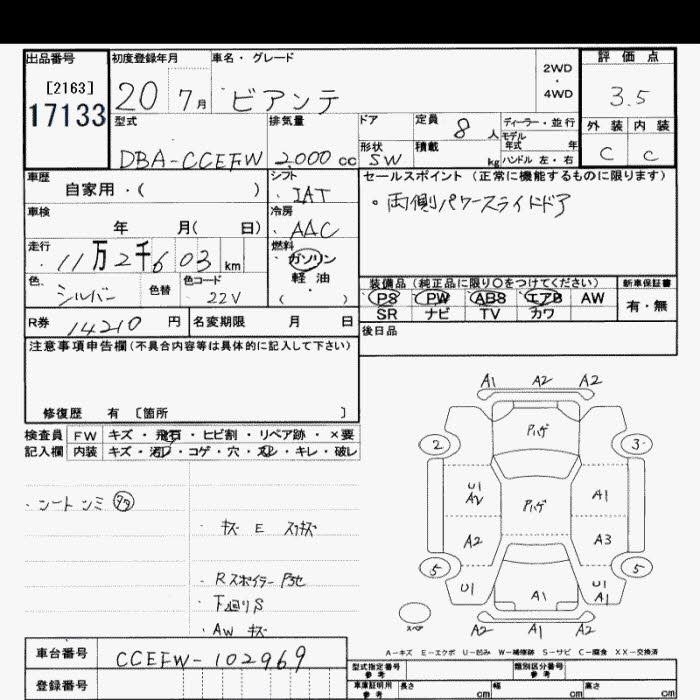 出品番号 初度登録年月 車名・グレード 2WD・4WD 評価点
[2163] 17133 20 7月 ビアンテ 3.5
型式 排気量 ドア 定員 8人 ディーラー・並行 外装 内装
モデル年式 年
DBA-CCEFW 2000cc 形状 SW 積載 kg ハンドル 左・右 C C
車歴 シフト セールスポイント (正常に機能するものに限ります)
自家用・( ) IAT ・両側パワースライドドア
車検 冷房
年 月( 日) AAC
走行 燃料
11万2千603km ガソリン
色 色替 色コード 軽油 装備品 (純正品に限り○をつけてください) 新車保証書
シルバー 22V ・( ) PS PW ABS エアB AW 有・無
R券 14210円 名変期限 月 日 SR ナビ TV カワ
注意事項申告欄(不具合内容等は具体的に記入して下さい) 後日品
修復歴 有 〔箇所 〕
検査員 FW キズ・飛石・ヒビ割・リペア跡・×要
記入欄 内装 キズ・汚レ・コゲ・穴・スレ・キレ・破レ
A1 A2 A2
2 Pハゲ 3
・シートシミ
U1 A2 Pハゲ A1
・キズ E スリキズ
A2 A3
5 5
・Rスポイラー
U1 A1 U1 A1
・下廻りS
スペア
・AW キズ
A2 A1 A2
A-キズ E-エクボ U-凹み W-補修跡 S-サビ C-腐食 XX-交換済
車台番号 CCEFW-102969
型式指定番号 参考 類別区分番号 参考
登録番号 車庫証明用 参考 長さ cm 幅 cm 高さ cm